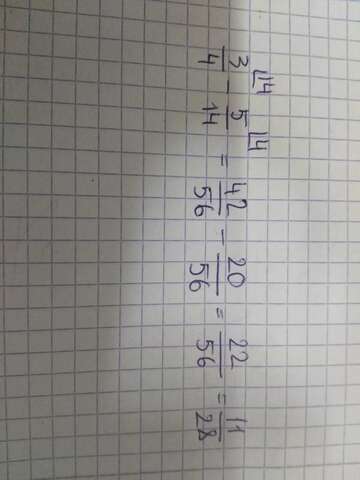 3/4 ⌊14 - 5/14 ⌊4 = 42/56 - 20/56 = 22/56 = 11/28